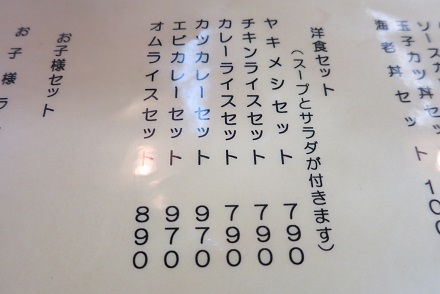 ソースカツ丼セット
玉子カツ丼セット
海老丼セット
洋食セット
(スープとサラダが付きます)
ヤキメシセット 790
チキンライスセット 790
カレーライスセット 790
カツカレーセット 970
エビカレーセット 970
オムライスセット 890
お子様セット
お子様ラ